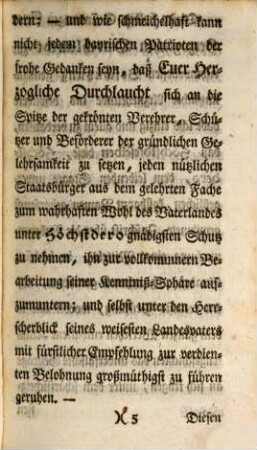 dern; — und wie schmeichelhaft kann
nicht jedem bayrischen Patrioten der
frohe Gedanken seyn, daß Euer Her-
zogliche Durchlaucht sich an die
Spitze der gekrönten Verehrer, Schü-
tzer und Beförderer der gründlichen Ge-
lehrsamkeit zu setzen, jeden nützlichen
Staatsbürger aus dem gelehrten Fache
zum wahrhaften Wohl des Vaterlandes
unter Höchstdero gnädigsten Schutz
zu nehmen, ihn zur vollkommnern Be-
arbeitung seiner Kenntniß-Sphäre auf-
zumuntern; und selbst unter den Herr-
scherblick seines weisesten Landesvaters
mit fürstlicher Empfehlung zur verdien-
ten Belohnung großmüthigst zu führen
geruhen. —
)( 5 Diesen